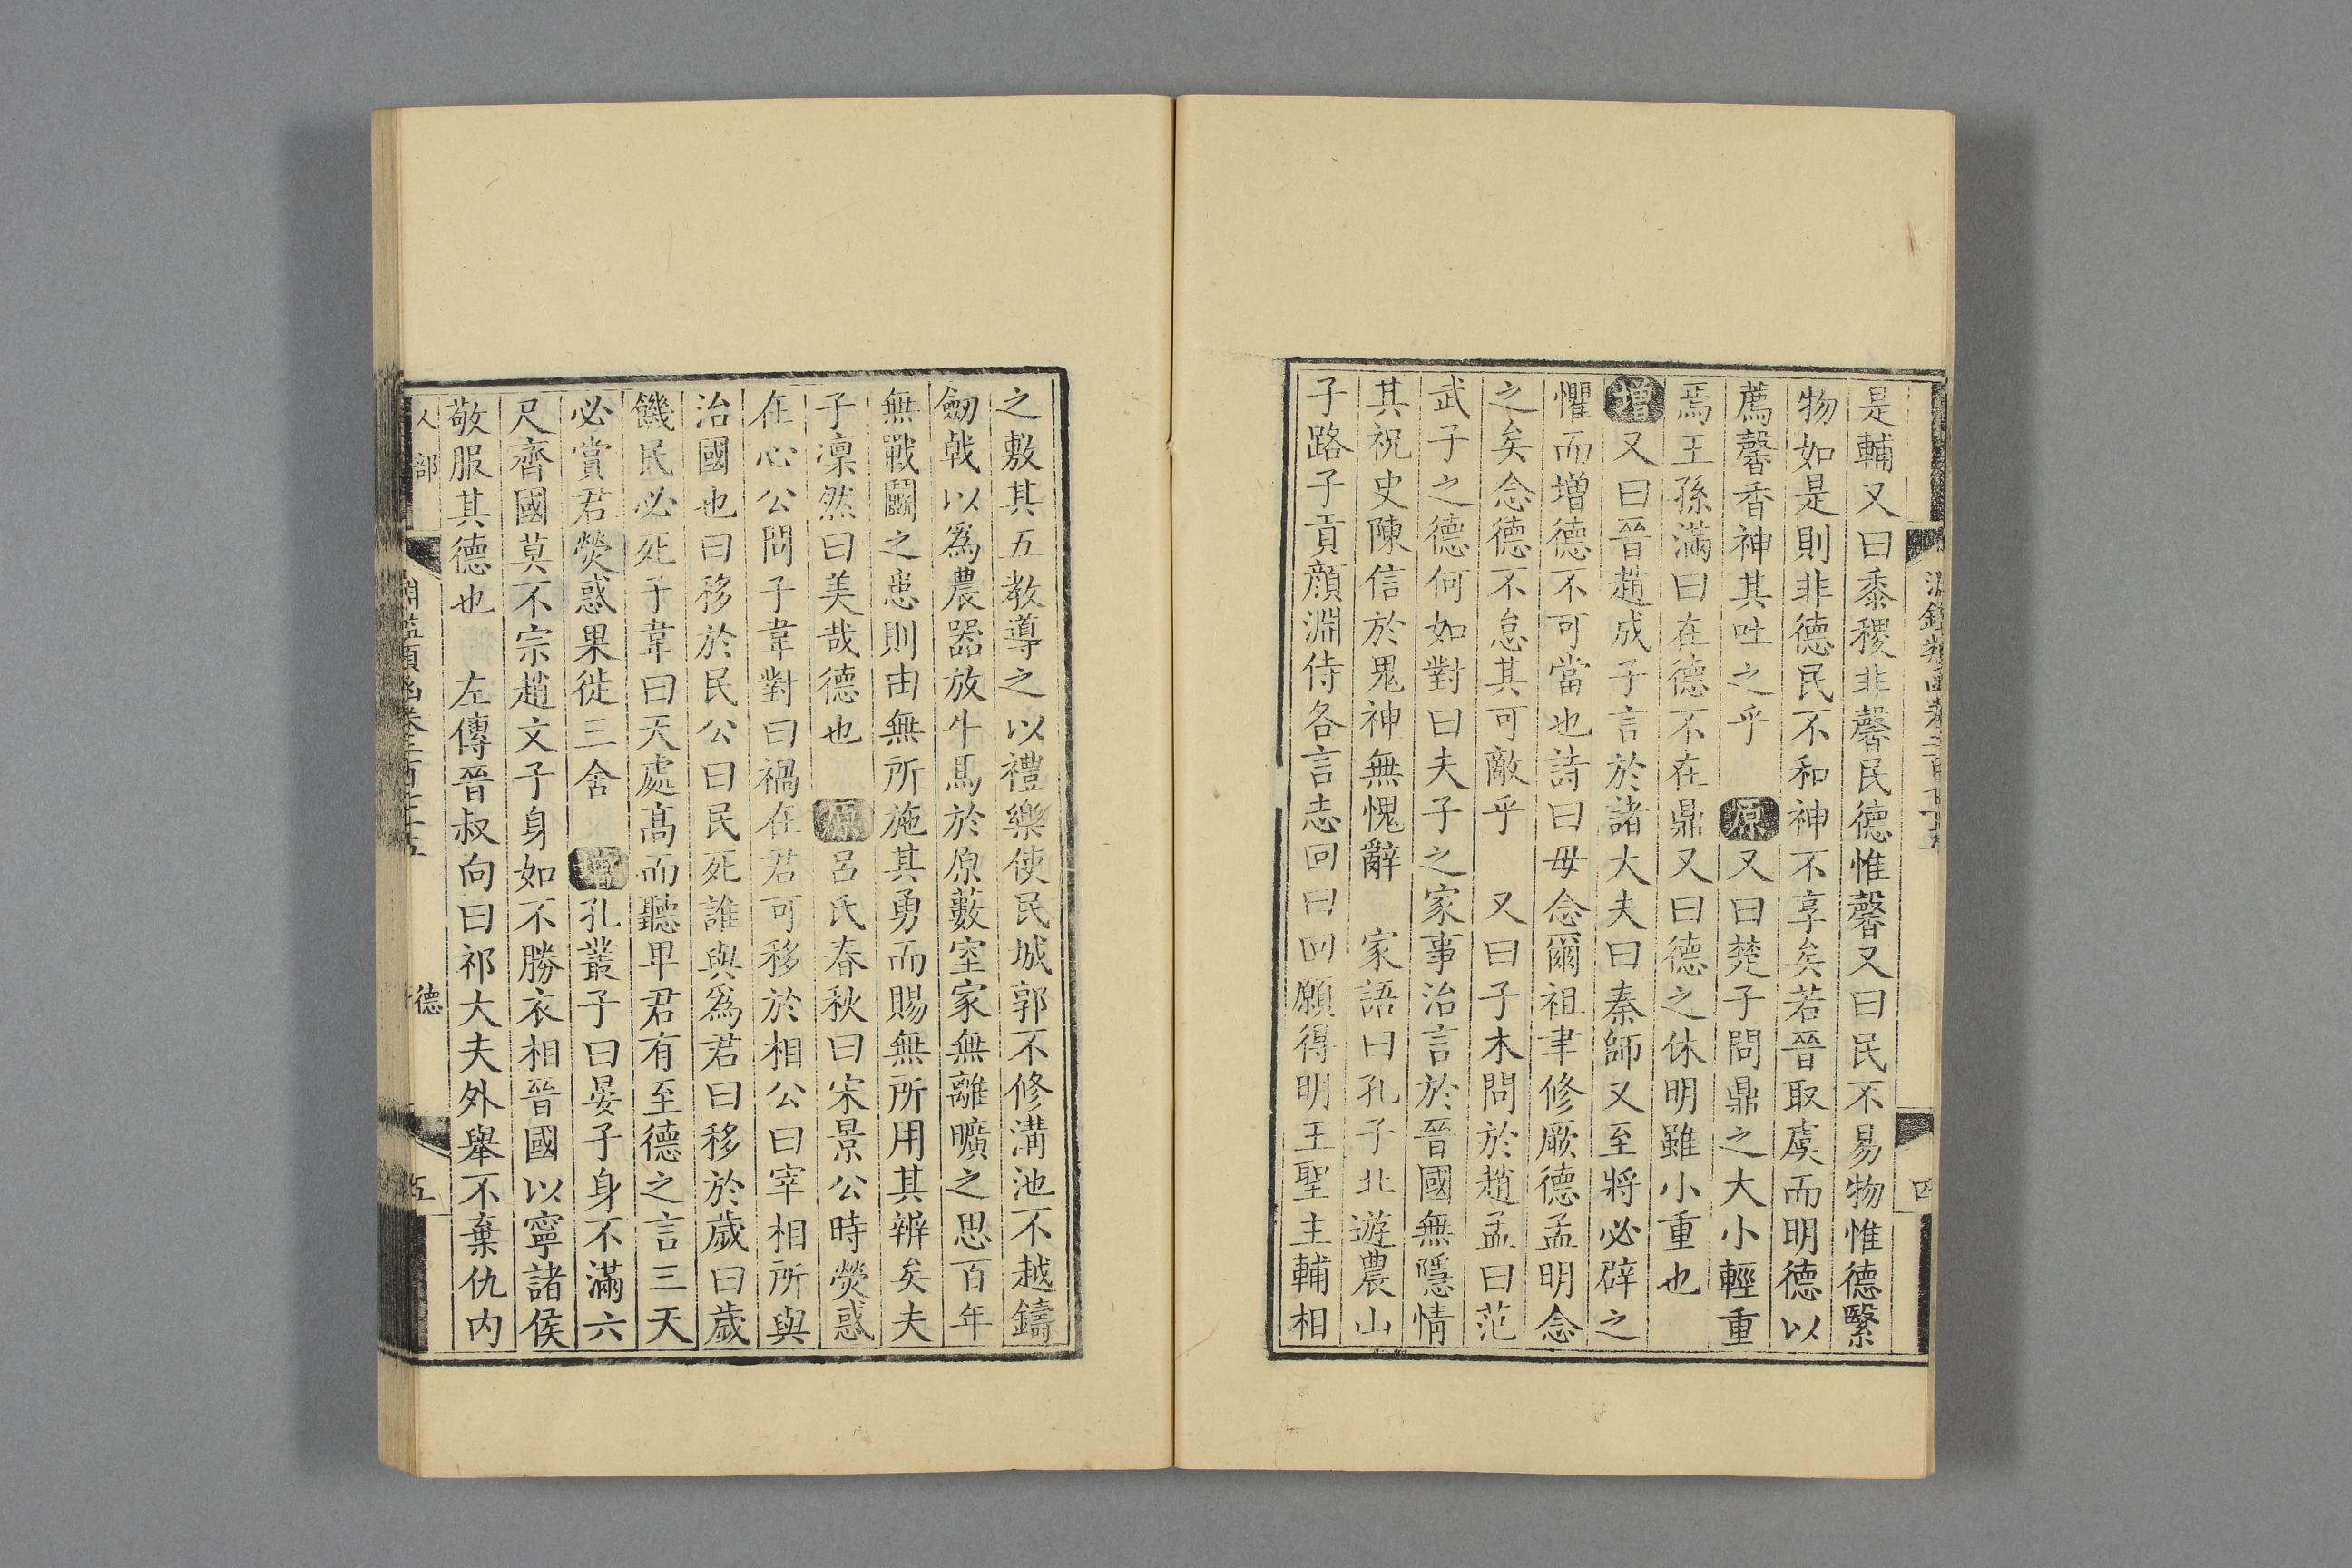 是輔又曰黍稷非馨民德惟馨又曰民不易物惟德繄
物如是則非德民不和神不享矣若晉取虞而明德以
薦馨香神其吐之乎 原 又曰楚子問鼎之大小輕重
焉王孫滿曰在德不在鼎又曰德之休明雖小重也
增 又曰晉趙成子言於諸大夫曰秦師又至將必辟之
懼而增德不可當也詩曰毋念爾祖聿修厥德孟明念
之矣念德不怠其可敵乎 又曰子木問於趙孟曰范
武子之德何如對曰夫子之家事治言於晉國無隱情
其祝史陳信於鬼神無愧辭 家語曰孔子北遊農山
子路子貢顏淵侍各言志回曰回願得明王聖主輔相
四
之敷其五教導之以禮樂使民城郭不修溝池不越鑄
劒戟以爲農器放牛馬於原藪室家無離曠之思百年
無戰鬬之患則由無所施其勇而賜無所用其辨矣夫
子凜然曰美哉德也 原 呂氏春秋曰宋景公時熒惑
在心公問子韋對曰禍在君可移於相公曰宰相所與
治國也曰移於民公曰民死誰與爲君曰移於歲曰歲
饑民必死子韋曰天處高而聽卑君有至德之言三天
必賞君熒惑果徙三舍 增 孔叢子曰晏子身不滿六
尺齊國莫不宗趙文子身如不勝衣相晉國以寧諸侯
敬服其德也 左傳晉叔向曰祁大夫外舉不棄仇內
人部 淵鑑類函卷二百七十五 德 五